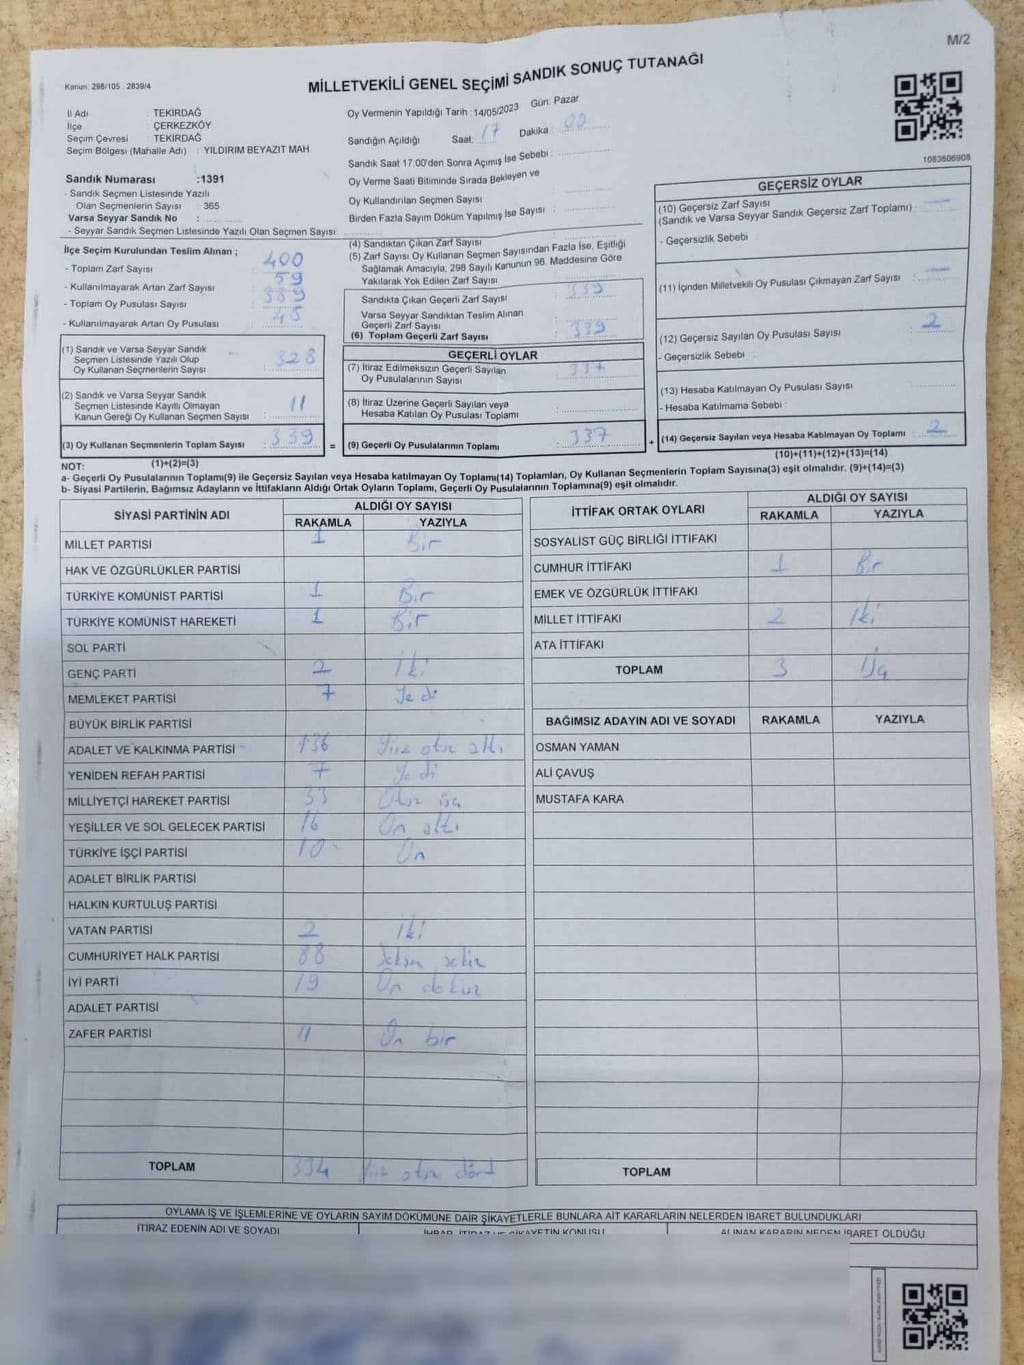 M/2
Kanun. 298/105 . 2839/4
MİLLETVEKİLİ GENEL SEÇİMİ SANDIK SONUÇ TUTANAĞI
İl Adı : TEKİRDAĞ
İlçe : ÇERKEZKÖY
Seçim Çevresi : TEKİRDAĞ
Seçim Bölgesi (Mahalle Adı) : YILDIRIM BEYAZIT MAH.
Sandık Numarası :1391
- Sandık Seçmen Listesinde Yazılı
Olan Seçmenlerin Sayısı : 365
Varsa Seyyar Sandık No :
- Seyyar Sandık Seçmen Listesinde Yazılı Olan Seçmen Sayısı :
Oy Vermenin Yapıldığı Tarih : 14/05/2023 Gün: Pazar
Sandığın Açıldığı Saat: 17 Dakika : 00
Sandık Saat 17:00'den Sonra Açılmış İse Sebebi :
Oy Verme Saati Bitiminde Sırada Bekleyen ve
Oy Kullandırılan Seçmen Sayısı :
Birden Fazla Sayım Döküm Yapılmış İse Sayısı :
1083606908
İlçe Seçim Kurulundan Teslim Alınan ;
- Toplam Zarf Sayısı : 400
- Kullanılmayarak Artan Zarf Sayısı : 59
- Toplam Oy Pusulası Sayısı : 389
- Kullanılmayarak Artan Oy Pusulası :
(1) Sandık ve Varsa Seyyar Sandık
Seçmen Listesinde Yazılı Olup
Oy Kullanan Seçmenlerin Sayısı : 328
(2) Sandık ve Varsa Seyyar Sandık
Seçmen Listesinde Kayıtlı Olmayan
Kanun Gereği Oy Kullanan Seçmen Sayısı : 11
(3) Oy Kullanan Seçmenlerin Toplam Sayısı : 339 =
(1)+(2)=(3)
(4) Sandıktan Çıkan Zarf Sayısı :
(5) Zarf Sayısı Oy Kullanan Seçmen Sayısından Fazla İse, Eşitliği
Sağlamak Amacıyla, 298 Sayılı Kanunun 98. Maddesine Göre
Yakılarak Yok Edilen Zarf Sayısı :
Sandıkta Çıkan Geçerli Zarf Sayısı : 339
Varsa Seyyar Sandıktan Teslim Alınan
Geçerli Zarf Sayısı :
(6) Toplam Geçerli Zarf Sayısı : 339
GEÇERLİ OYLAR
(7) İtiraz Edilmeksizin Geçerli Sayılan
Oy Pusulalarının Sayısı : 337
(8) İtiraz Üzerine Geçerli Sayılan veya
Hesaba Katılan Oy Pusulası Toplamı :
(9) Geçerli Oy Pusulalarının Toplamı : 337 +
GEÇERSİZ OYLAR
(10) Geçersiz Zarf Sayısı
(Sandık ve Varsa Seyyar Sandık Geçersiz Zarf Toplamı) : —
- Geçersizlik Sebebi :
(11) İçinden Milletvekili Oy Pusulası Çıkmayan Zarf Sayısı : —
(12) Geçersiz Sayılan Oy Pusulası Sayısı : 2
- Geçersizlik Sebebi :
(13) Hesaba Katılmayan Oy Pusulası Sayısı :
- Hesaba Katılmama Sebebi :
(14) Geçersiz Sayılan veya Hesaba Katılmayan Oy Toplamı : 2
(10)+(11)+(12)+(13)=(14)
NOT:
a- Geçerli Oy Pusulalarının Toplamı(9) ile Geçersiz Sayılan veya Hesaba katılmayan Oy Toplamı(14) Toplamları, Oy Kullanan Seçmenlerin Toplam Sayısına(3) eşit olmalıdır. (9)+(14)=(3)
b- Siyasi Partilerin, Bağımsız Adayların ve İttifakların Aldığı Ortak Oyların Toplamı, Geçerli Oy Pusulalarının Toplamına(9) eşit olmalıdır.
SİYASİ PARTİNİN ADI ALDIĞI OY SAYISI
RAKAMLA YAZIYLA
MİLLET PARTİSİ 1 Bir
HAK VE ÖZGÜRLÜKLER PARTİSİ
TÜRKİYE KOMÜNİST PARTİSİ 1 Bir
TÜRKİYE KOMÜNİST HAREKETİ 1 Bir
SOL PARTİ
GENÇ PARTİ 2 İki
MEMLEKET PARTİSİ 7 Yedi
BÜYÜK BİRLİK PARTİSİ
ADALET VE KALKINMA PARTİSİ 136 Yüz otuz altı
YENİDEN REFAH PARTİSİ 7 Yedi
MİLLİYETÇİ HAREKET PARTİSİ 33 Otuz üç
YEŞİLLER VE SOL GELECEK PARTİSİ 16 On altı
TÜRKİYE İŞÇİ PARTİSİ 10 On
ADALET BİRLİK PARTİSİ
HALKIN KURTULUŞ PARTİSİ
VATAN PARTİSİ 2 İki
CUMHURİYET HALK PARTİSİ 88 Seksen sekiz
İYİ PARTİ 19 On dokuz
ADALET PARTİSİ
ZAFER PARTİSİ 11 On bir
TOPLAM 334 Yüz otuz dört
İTTİFAK ORTAK OYLARI ALDIĞI OY SAYISI
RAKAMLA YAZIYLA
SOSYALİST GÜÇ BİRLİĞİ İTTİFAKI
CUMHUR İTTİFAKI 1 Bir
EMEK VE ÖZGÜRLÜK İTTİFAKI
MİLLET İTTİFAKI 2 İki
ATA İTTİFAKI
TOPLAM 3 Üç
BAĞIMSIZ ADAYIN ADI VE SOYADI RAKAMLA YAZIYLA
OSMAN YAMAN
ALİ ÇAVUŞ
MUSTAFA KARA
TOPLAM
OYLAMA İŞ VE İŞLEMLERİNE VE OYLARIN SAYIM DÖKÜMÜNE DAİR ŞİKAYETLERLE BUNLARA AİT KARARLARIN NELERDEN İBARET BULUNDUKLARI
İTİRAZ EDENİN ADI VE SOYADI İHBAR, İTİRAZ VE ŞİKAYETİN KONUSU ALINAN KARARIN NEDEN İBARET OLDUĞU